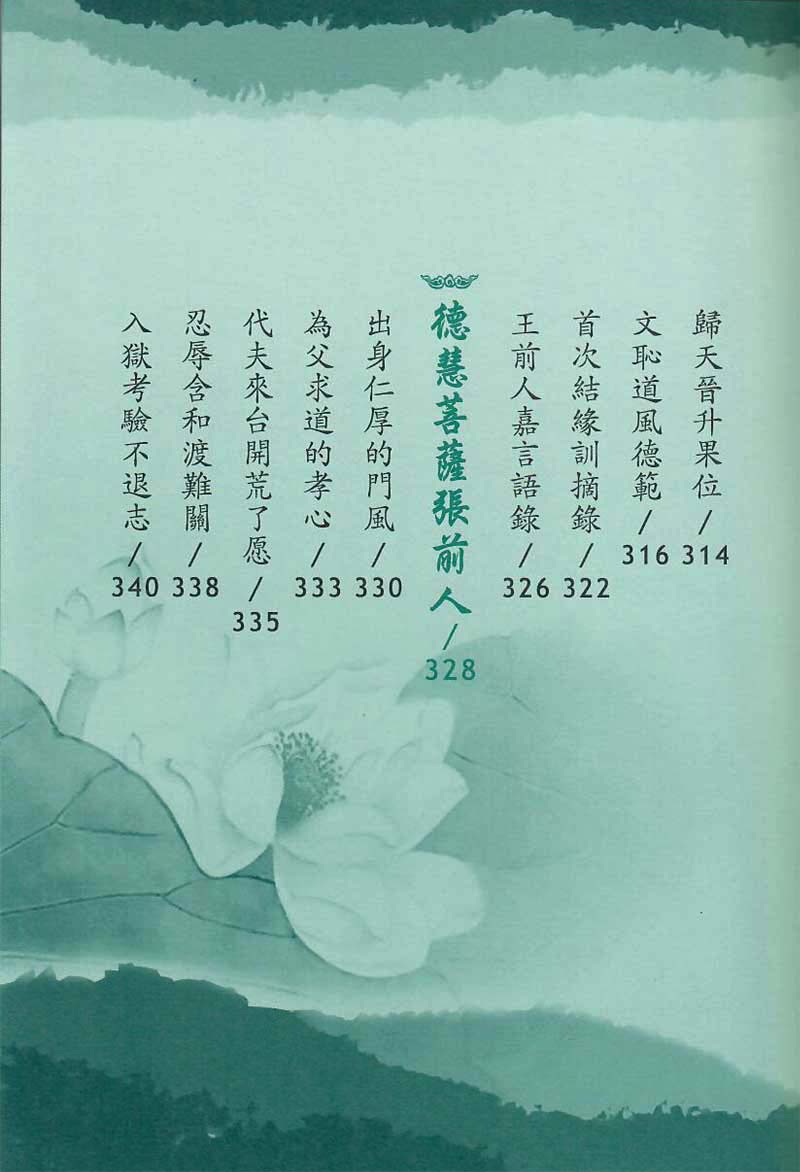 歸天晉升果位/314
文恥道風德範/316
首次結緣訓摘錄/322
王前人嘉言語錄/326
德慧菩薩張前人/328
出身仁厚的門風/330
為父求道的孝心/333
代夫來台開荒了愿/335
忍辱含和渡難關/338
入獄考驗不退志/340